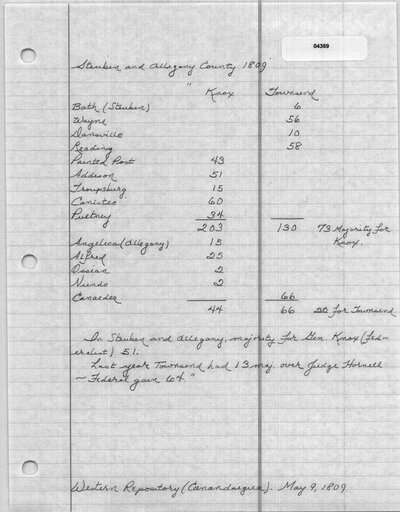 04369
Steuben and Allegany County 1809
"
Knox Townsend
Bath (Steuben) 6
Wayne 56
Dansville 10
Reading 58
Painted Post 43
Addison 51
Troupsburg 15
Canisteo 60
Pultney 34
203 130 73 Majority for
Knox.
Angelica (Allegany) 15
Alfred 25
Ossian 2
Nunda 2
Canaedea 66
44 66 22 for Townsend
In Steuben and Allegany, majority for Gen. Knox (Fed-
eralist) 51.
Last year Townsend had 13 maj. over Judge Hornell
- Federal gain 64."
Western Repository (Canandaigua). May 9, 1809.